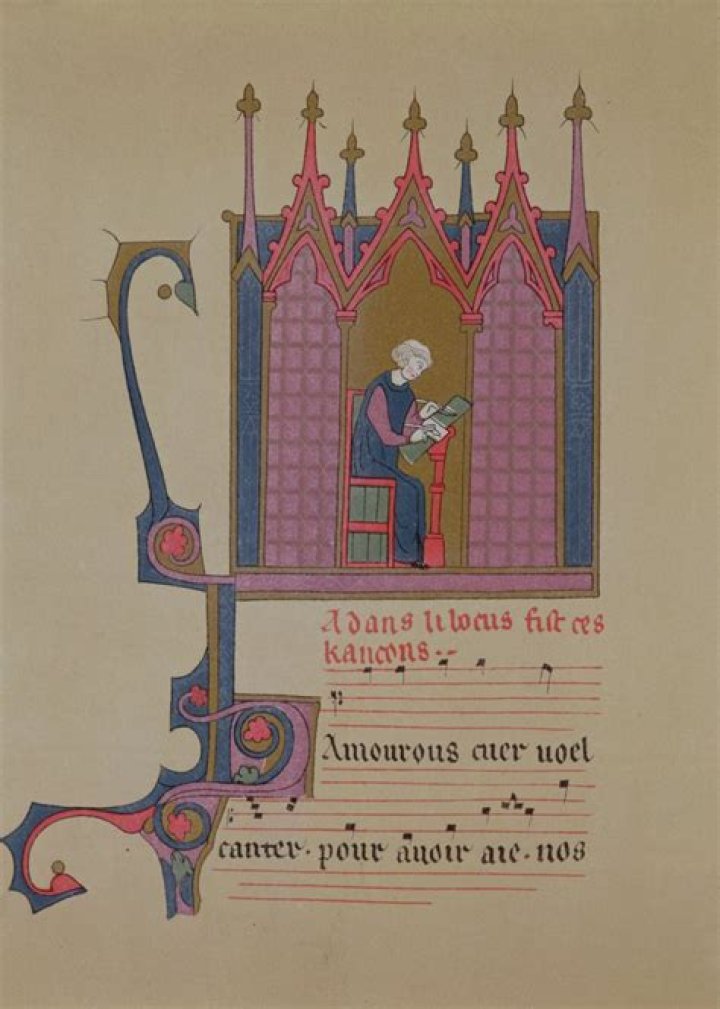 Adans li bocus fist ces
kancons..
Amourous cuer uoel
canter. pour auoir aie. nos